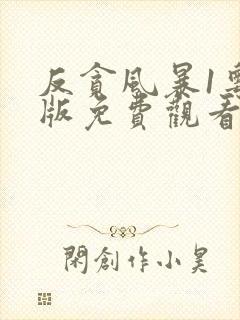 反貪風暴1粵
版免費觀看
閑創作小昊